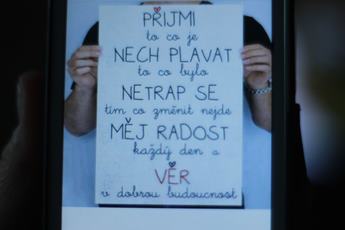 PŘIJMI
to co je
NECH PLAVAT
to co bylo
NETRAP SE
tím co změnit nejde
MĚJ RADOST
každý den a
VĚR
v dobrou budoucnost